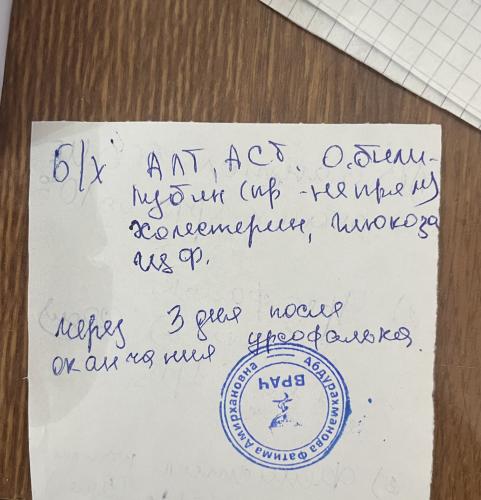 Б/х АЛТ, АСТ. О.били-
рубин (пр - непрям)
холестерин, глюкоза
щф.
через 3 дня после
окончания урсофалька.
Абдурахманова Фатима Амирхановна
ВРАЧ